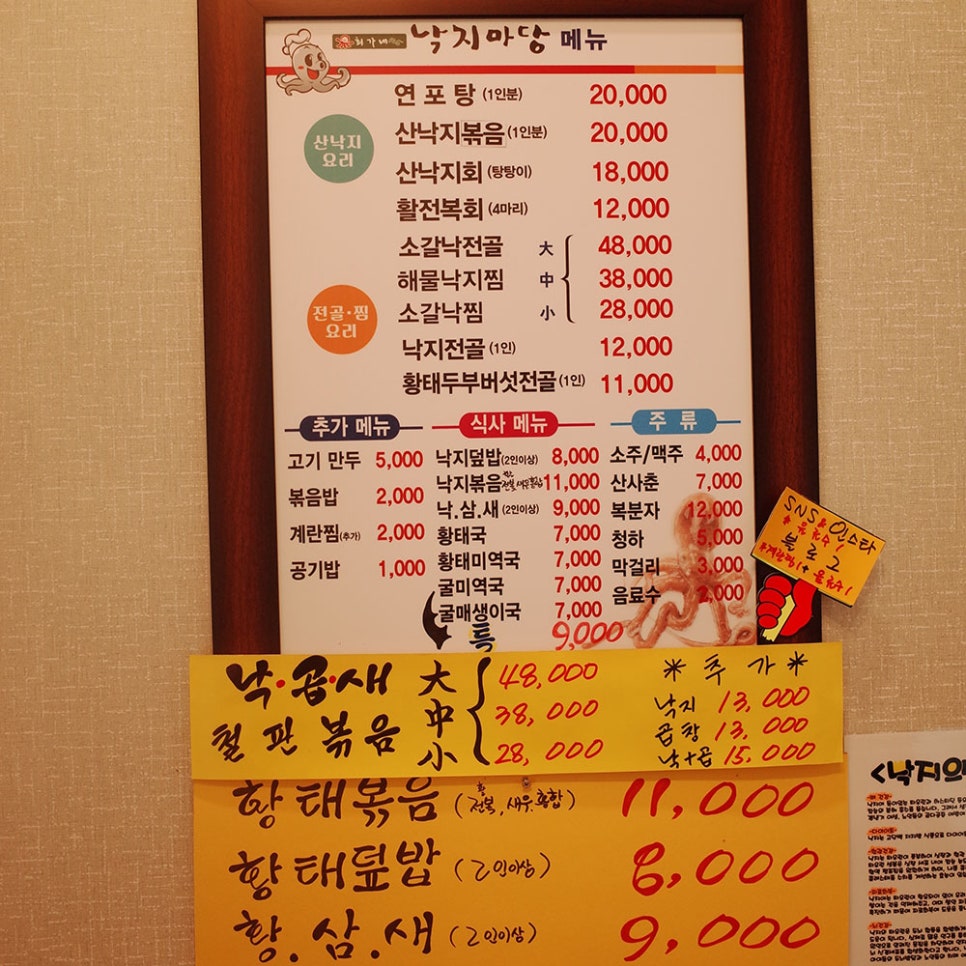 최가네 낙지마당 메뉴
산낙지
요리
연포탕 (1인분) 20,000
산낙지볶음 (1인분) 20,000
산낙지회 (탕탕이) 18,000
활전복회 (4마리) 12,000
전골·찜
요리
소갈낙전골 大 48,000
해물낙지찜 中 38,000
소갈낙찜 小 28,000
낙지전골 (1인) 12,000
황태두부버섯전골 (1인) 11,000
추가 메뉴
고기 만두 5,000
볶음밥 2,000
계란찜 (추가) 2,000
공기밥 1,000
식사 메뉴
낙지덮밥 (2인이상) 8,000
낙지볶음 11,000
낙.삼.새 (2인이상) 9,000
황태국 7,000
황태미역국 7,000
굴미역국 7,000
굴매생이국 7,000
특 9,000
주 류
소주/맥주 4,000
산사춘 7,000
복분자 12,000
청하 5,000
막걸리 3,000
음료수 2,000
SNS & 인스타
* 음료수!
블로그
낙·곱·새
철판볶음
大 48,000
中 38,000
小 28,000
* 추 가 *
낙지 13,000
곱창 13,000
낙+곱 15,000
황태볶음 (전복, 새우, 홍합) 11,000
황태덮밥 (2인이상) 8,000
황.삼.새 (2인이상) 9,000
<낙지의